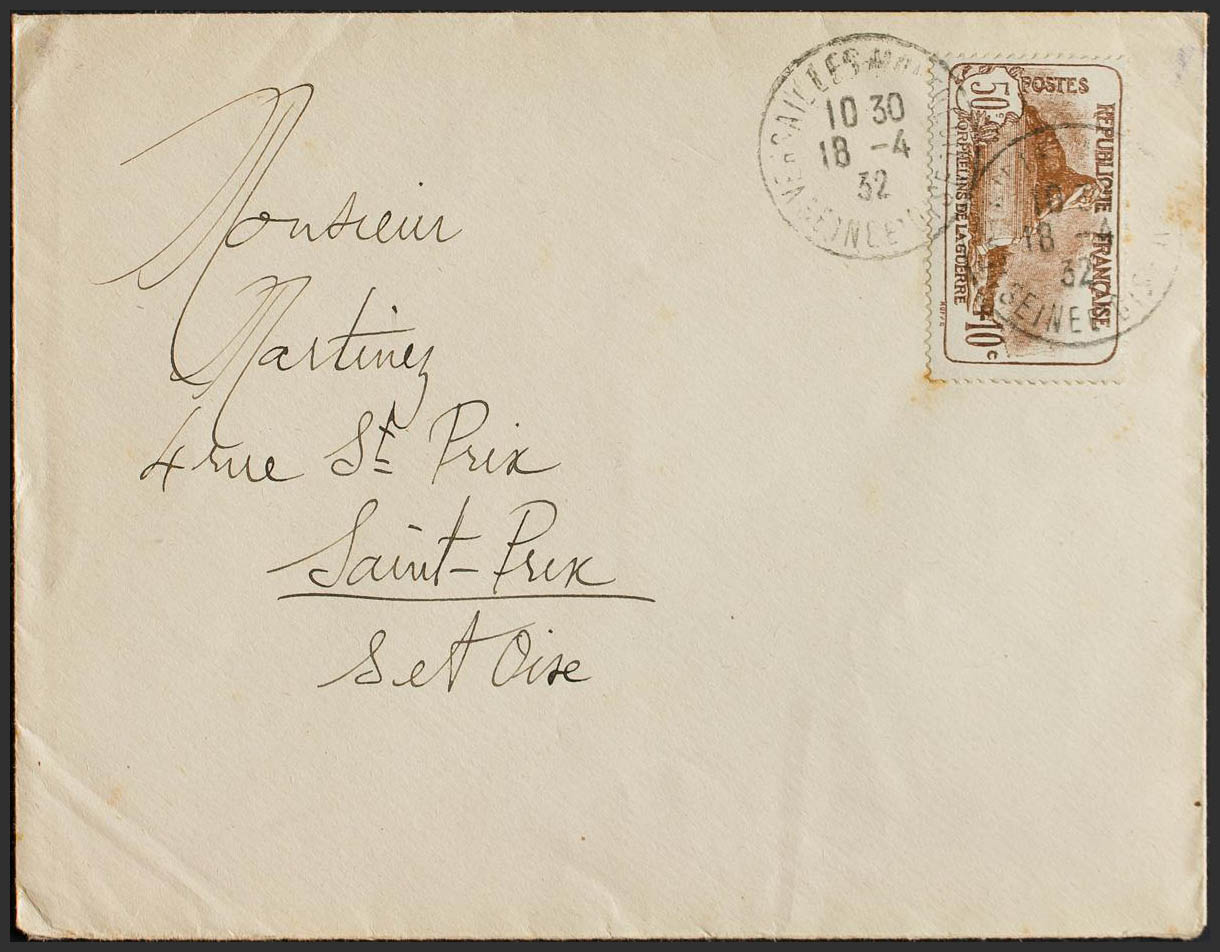 Monsieur
Martinez
4 rue St Prix
Saint-Prix
S et Oise
VERSAILLES
SEINE
10 30
18 -4
32
50c
POSTES
REPUBLIQUE FRANÇAISE
ORPHELINS DE LA GUERRE
+10c
10
18 -4
32
SEINE